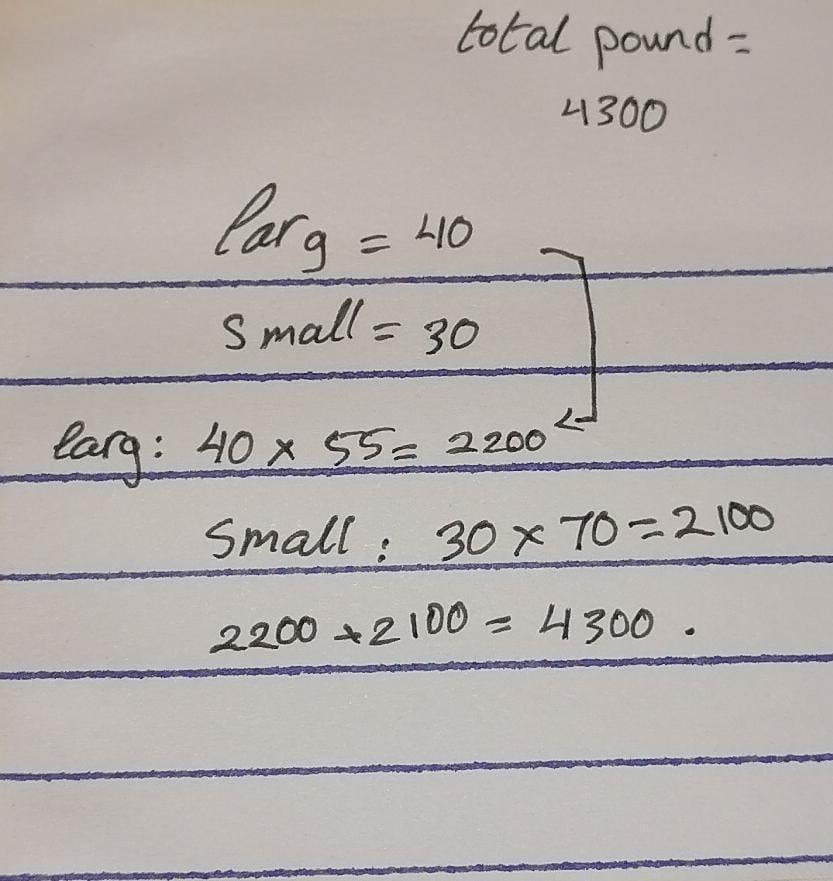 total pound =
4300
larg = 40
Small = 30
larg: 40 x 55 = 2200
Small : 30 x 70 = 2100
2200 + 2100 = 4300 .